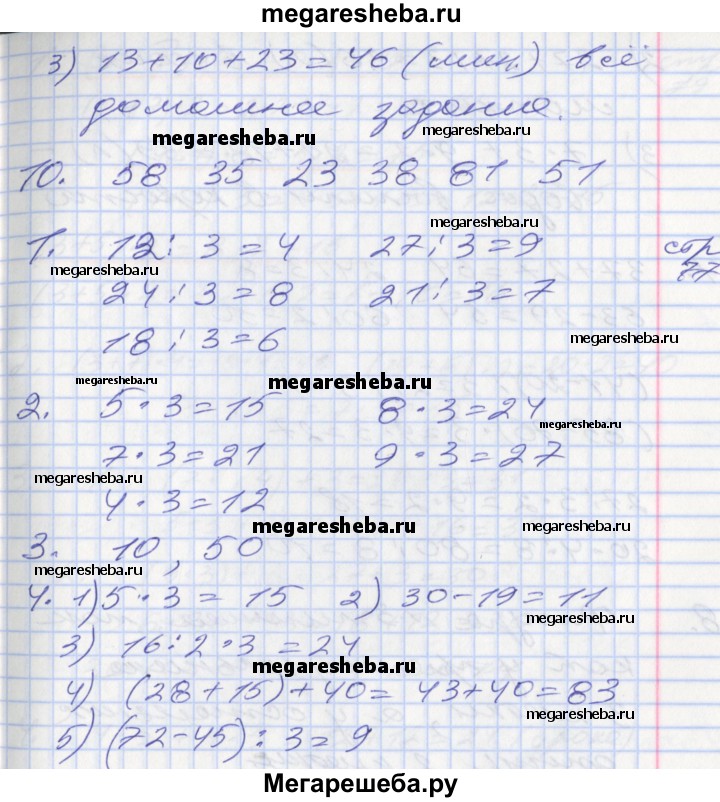 megaresheba.ru
3) 13+10+23=46 (мин.) всё
домашнее задание.
megaresheba.ru
megaresheba.ru
10. 58 35 23 38 81 51
megaresheba.ru
1. 12:3=4 27:3=9 стр 77
megaresheba.ru
24:3=8 21:3=7
megaresheba.ru
18:3=6
megaresheba.ru
megaresheba.ru
2. 5·3=15 8·3=24
megaresheba.ru
7·3=21 9·3=27
megaresheba.ru
4·3=12
megaresheba.ru
3. 10, 50
megaresheba.ru
4. 1) 5·3= 15 2) 30-19=11
megaresheba.ru
3) 16:2·3=24
megaresheba.ru
4) (28+15)+40= 43+40=83
megaresheba.ru
5) (72-45):3=9
megaresheba.ru
Мегарешеба.ру